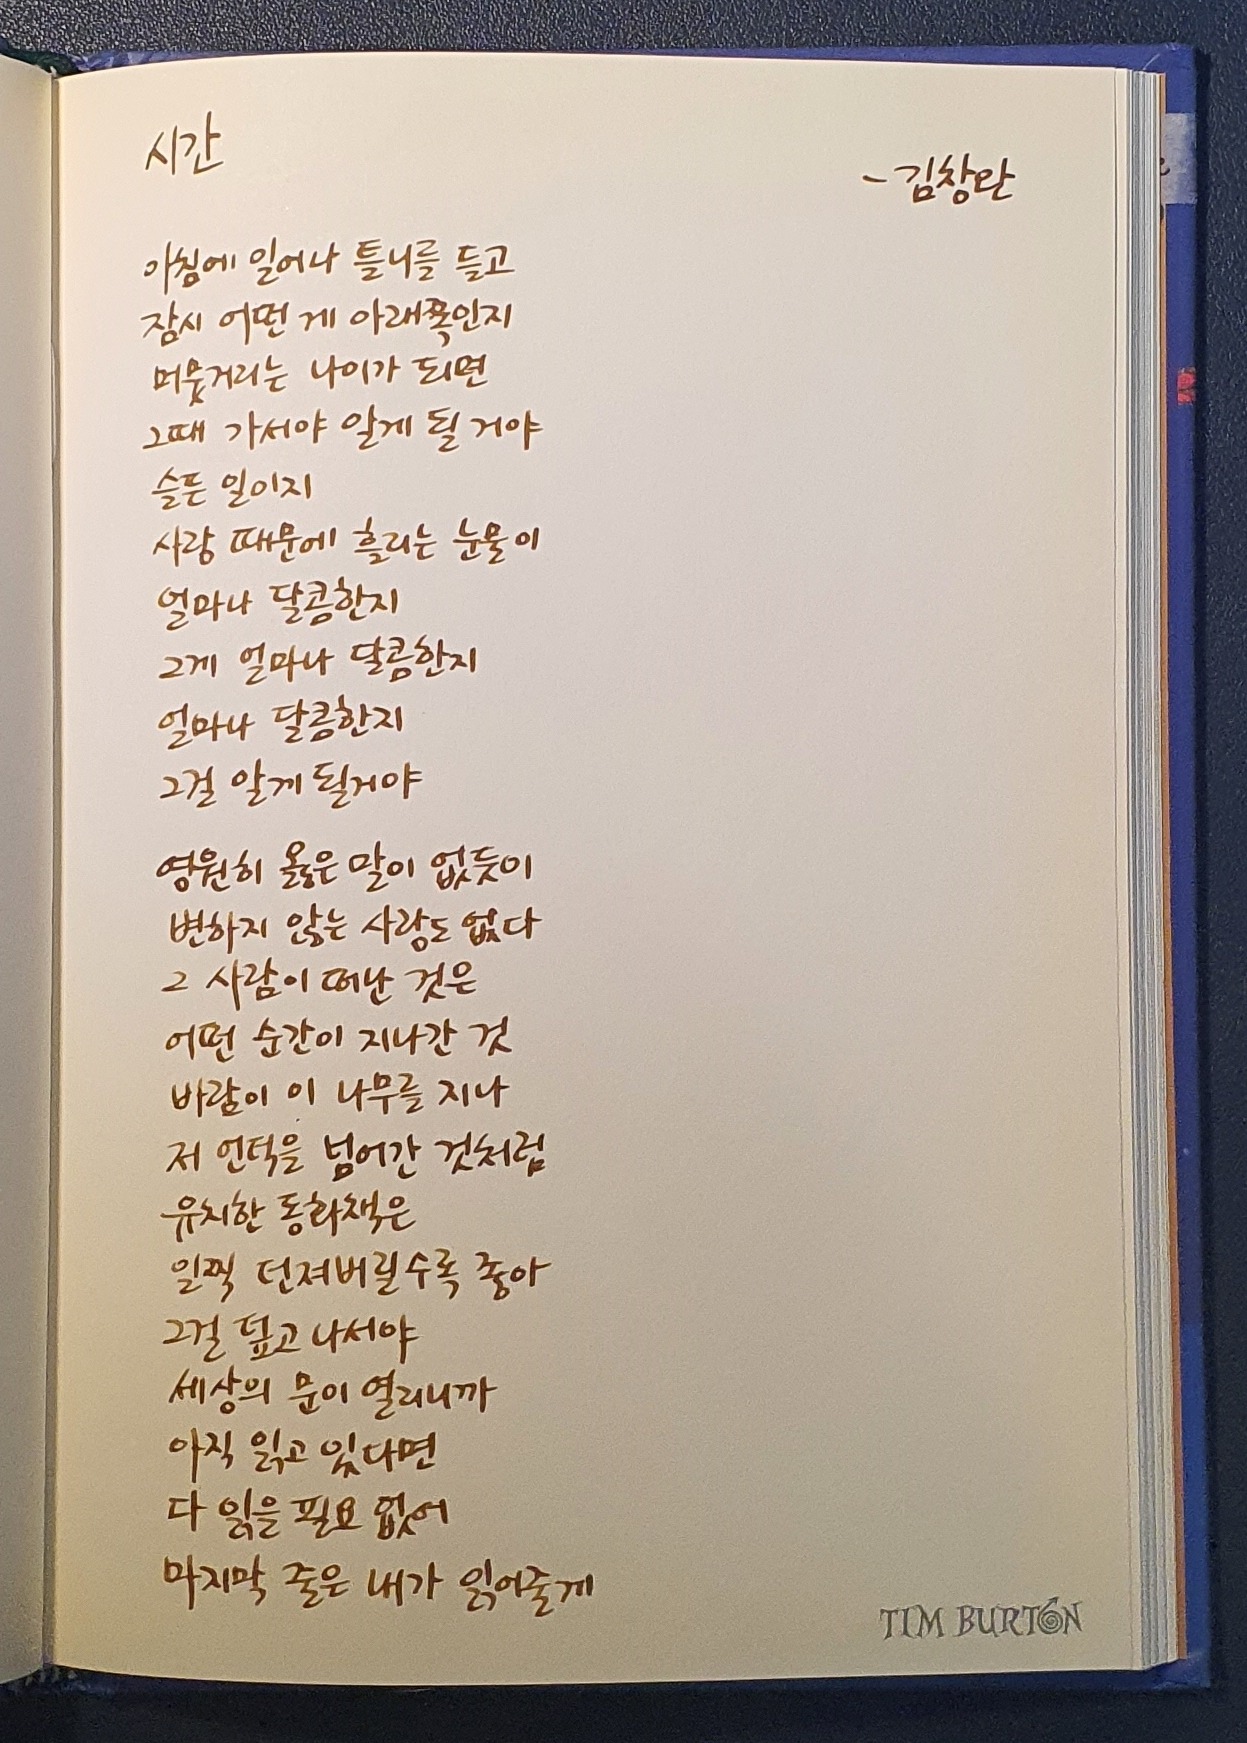 시간
- 김창완
아침에 일어나 틀니를 들고
잠시 어떤 게 아래쪽인지
머뭇거리는 나이가 되면
그때 가서야 알게 될 거야
슬픈 일이지
사랑 때문에 흘리는 눈물이
얼마나 달콤한지
그게 얼마나 달콤한지
얼마나 달콤한지
그걸 알게 될거야
영원히 옳은 말이 없듯이
변하지 않는 사랑도 없다
그 사람이 떠난 것은
어떤 순간이 지나간 것
바람이 이 나무를 지나
저 언덕을 넘어간 것처럼
유치한 동화책은
일찍 던져버릴수록 좋아
그걸 덮고 나서야
세상의 문이 열리니까
아직 읽고 있다면
다 읽을 필요 없어
마지막 줄은 내가 읽어줄게
TIM BURTON